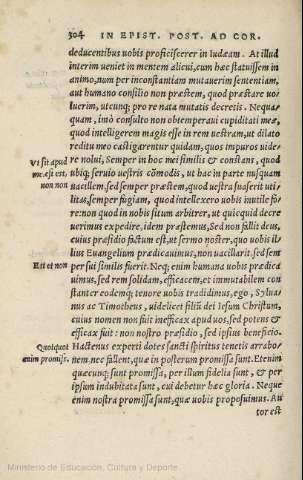 304 IN EPIST. POST. AD COR.
deducentibus uobis proficiscerer in Iudæam. At illud
interim ueniet in mentem alicui, cum hæc statuissem in
animo, num per inconstantiam mutauerim sententiam,
aut humano consilio non præstem, quod præstare uo-
luerim, utcunq; pro re nata mutatis decretis. Nequa-
quam, imò consulto non obtemperaui cupiditati meæ,
quod intelligerem magis esse in rem uestram, ut dilato
reditu meo castigarentur quidam, quos impuros uide-
re nolui, Semper in hoc mei similis & constans, quod
Vt sit apud
ubiq; seruio uestris cōmodis, ut hac in parte nusquam
me. est est,
non non
uacillem, sed semper præstem, quod uestra suaserit uti-
litas, semper fugiam, quod intellexero uobis inutile fo-
re: non quod in nobis situm arbitrer, ut quicquid decre
uerimus expedire, idem præstemus, Sed non fallit deus,
cuius præsidio factum est, ut sermo noster, quo uobis il-
lius Euangelium prædicauimus, non uacillarit, sed sem
Est et non
per sui similis fuerit. Neq; enim humana uobis prædica
uimus, sed rem solidam, efficacem, et immutabilem con
stanter eodemq; tenore uobis tradidimus, ego, Sylua
nus ac Timotheus, uidelicet filiū dei Iesum Christum,
cuius nomen non fuit inefficax apud uos, sed potens &
efficax fuit: non nostro præsidio, sed ipsius beneficio.
Quotquot
Hactenus experti dotes sancti spiritus tenetis arrabo-
enim promiss.
nem nec fallent, quæ in posterum promissa sunt. Etenim
quæcunq; sunt promissa, per illum fidelia sunt, & per
ipsum indubitata sunt, cui debetur hæc gloria. Neque
enim nostra promissa sunt, quæ uobis proposuimus. Au
tor est
Ministerio de Educación, Cultura y Deporte